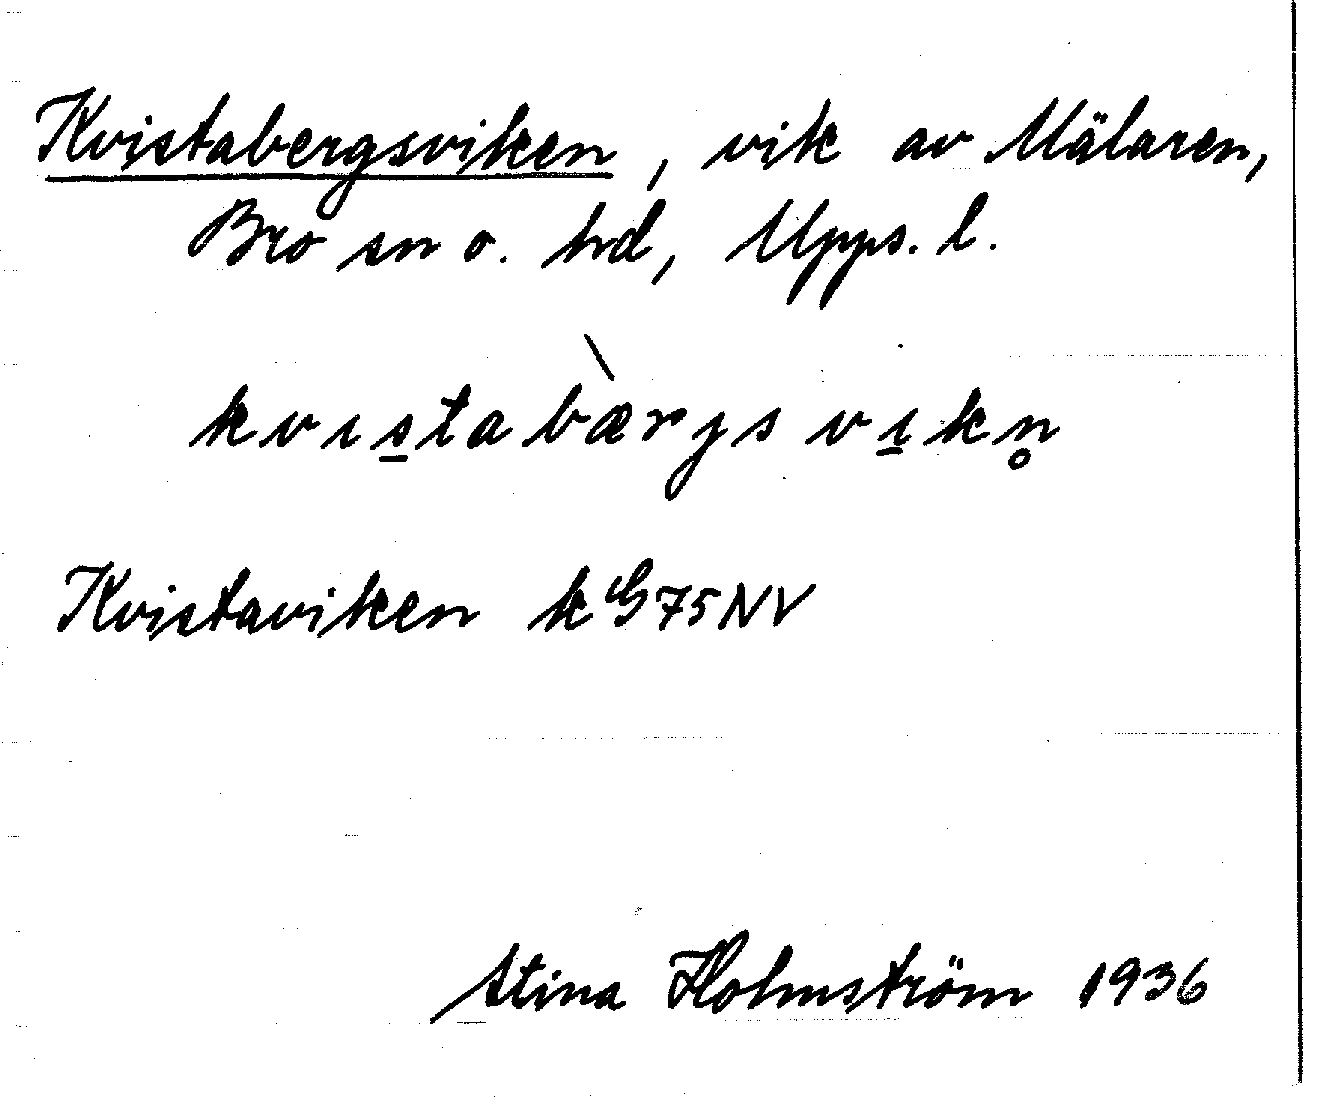 Kvistabergsviken, vik av Mälaren,
Bro sn o. hd, Upps. l.
kvıs̲tabæ̀rjs vı̲kn̥
Kvistaviken k G 75 NV
Stina Holmström 1936